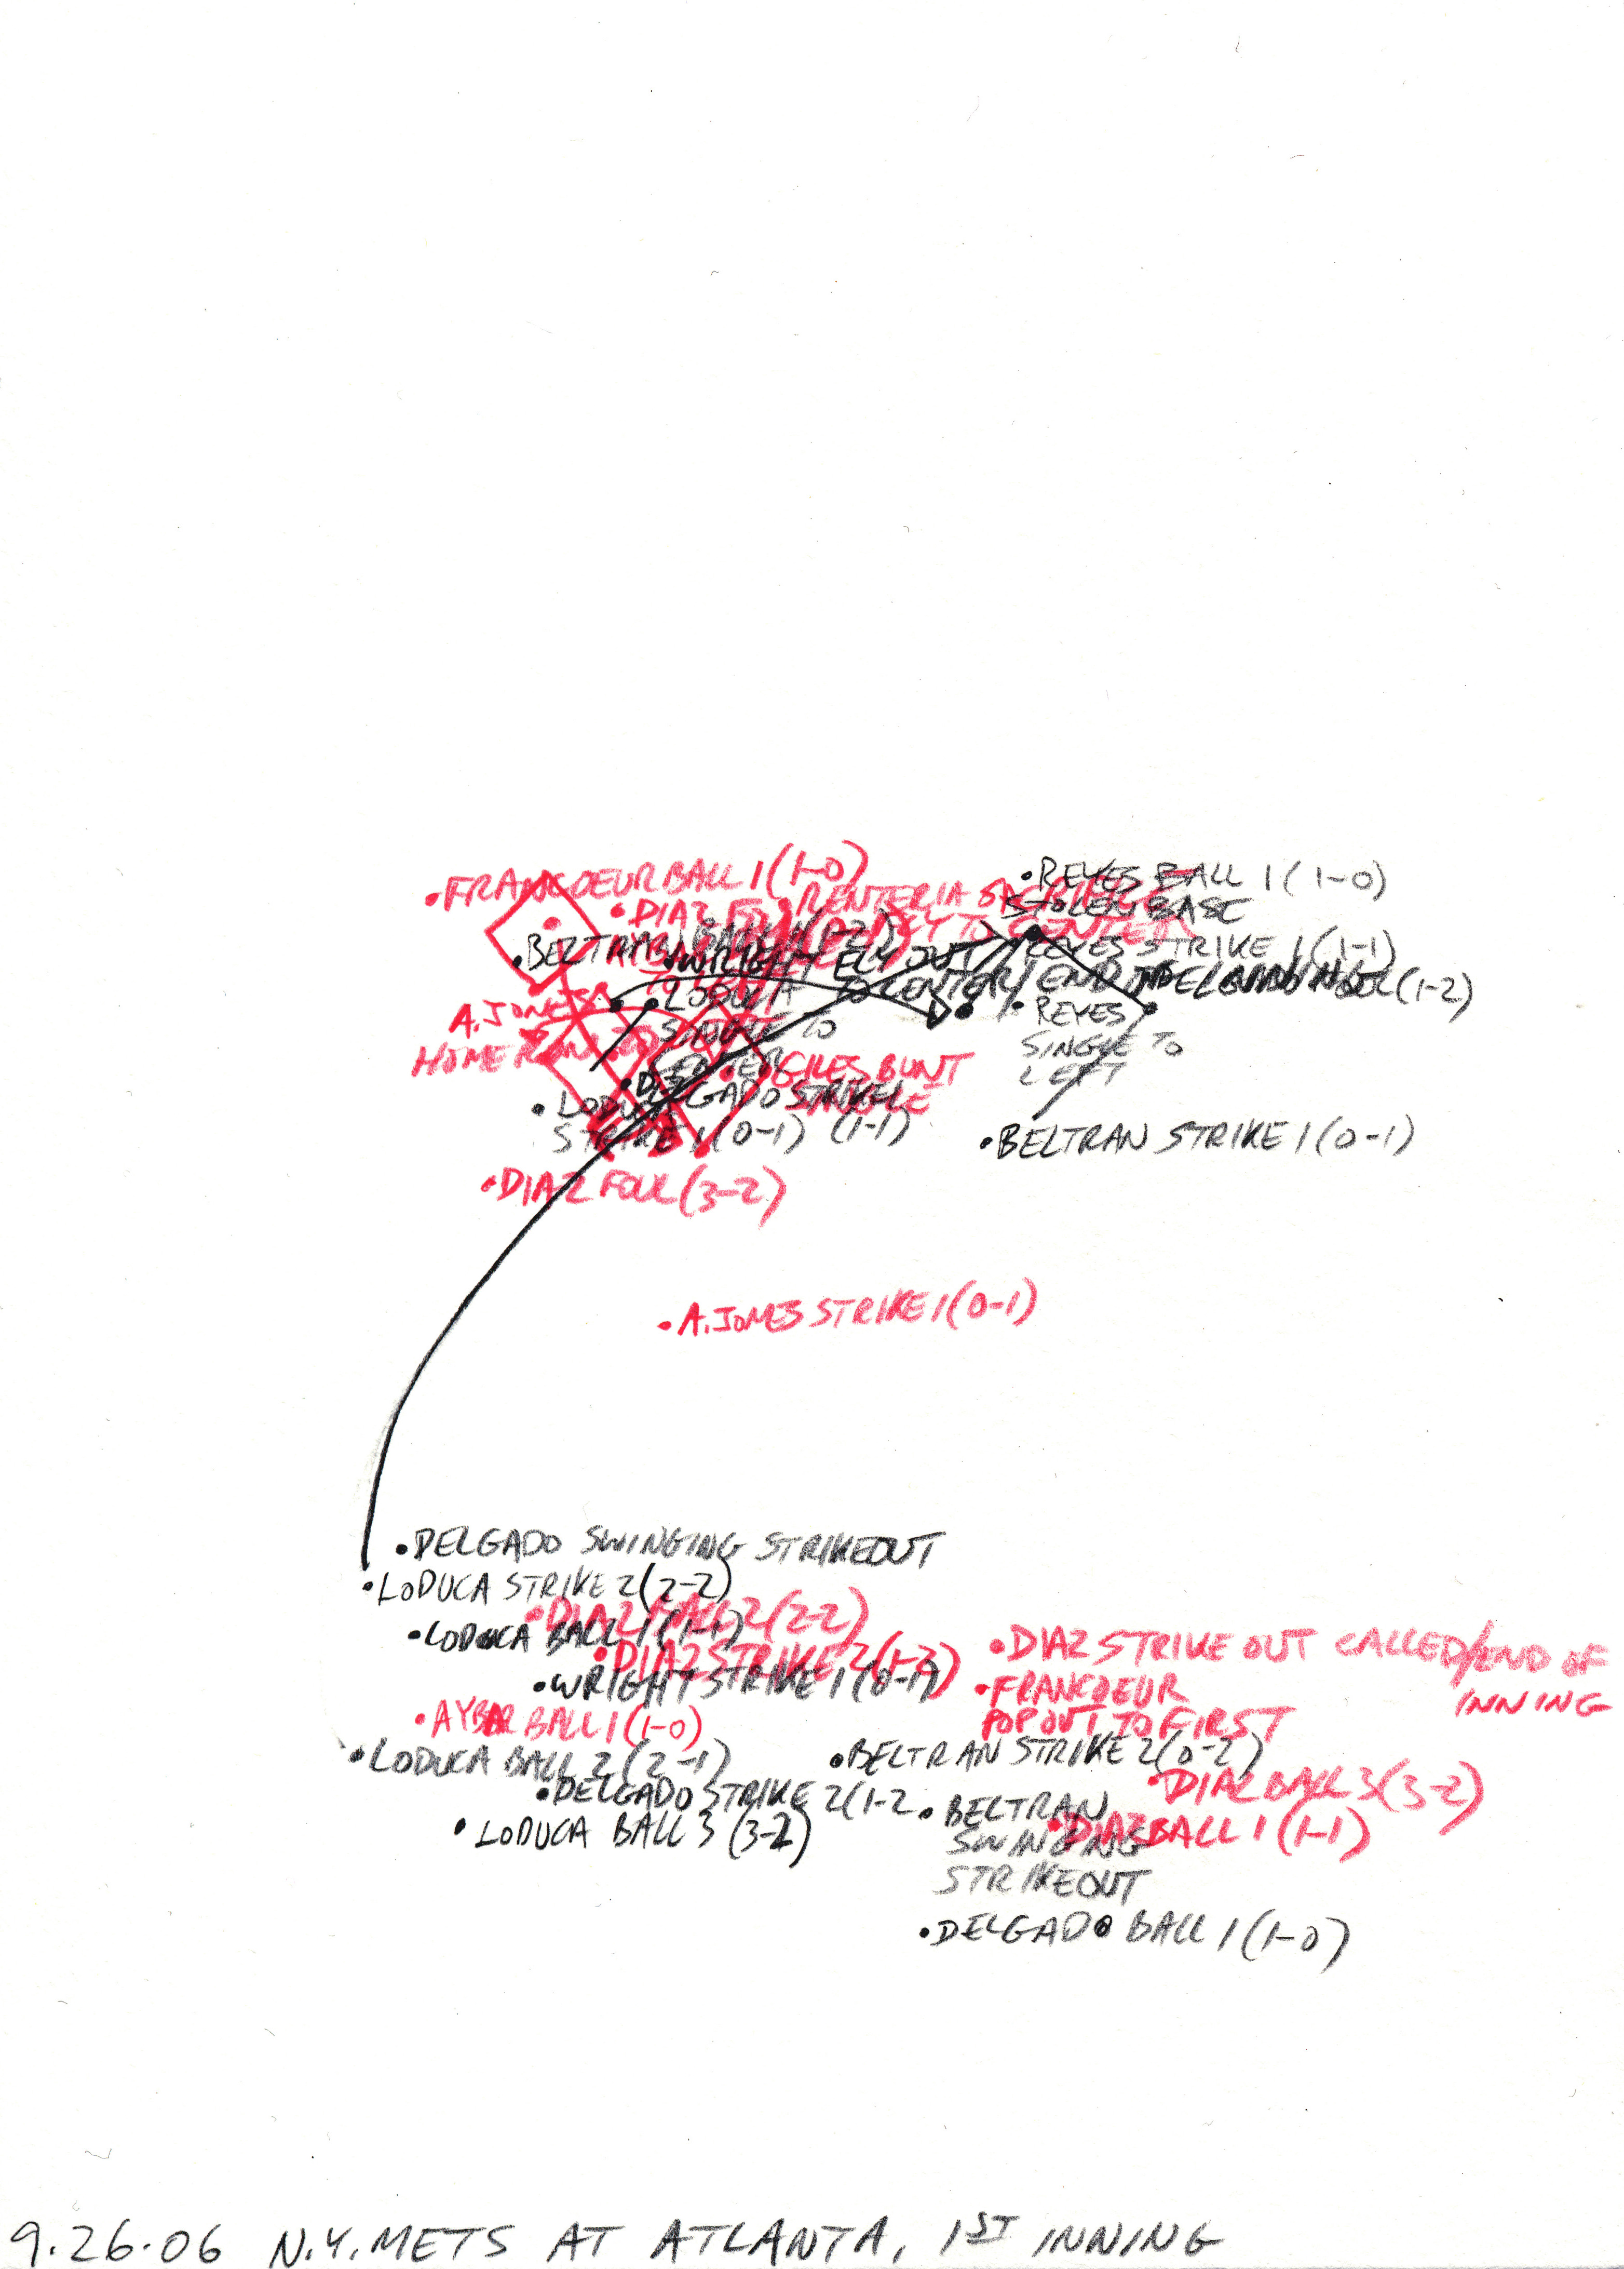 •FRANCOEUR BALL 1 (1-0)
•DIAZ
RENTERIA
FLY TO CENTER
•REYES BALL 1 (1-0)
STOLEN BASE
REYES STRIKE 1 (1-1)
•BELTRAN
•WRIGHT FLY OUT
TO CENTER/END
DELGADO
(1-2)
A. JONES
HOME RUN
•LODUCA
SINGLE TO
CENTER
•REYES
SINGLE TO
LEFT
•GILES BUNT
SINGLE
•DELGADO STRIKE 1
(1-1)
•LODUCA
STRIKE 1 (0-1)
•BELTRAN STRIKE 1 (0-1)
•DIAZ FOUL (3-2)
•A. JONES STRIKE 1 (0-1)
•DELGADO SWINGING STRIKEOUT
•LODUCA STRIKE 2 (2-2)
•DIAZ BALL 2 (2-2)
•LODUCA BALL 1 (1-1)
•DIAZ STRIKE 2 (1-2)
•DIAZ STRIKE OUT CALLED/END OF
INNING
•WRIGHT STRIKE 1 (0-1)
•FRANCOEUR
POP OUT TO FIRST
•AYBAR BALL 1 (1-0)
•LODUCA BALL 2 (2-1)
•BELTRAN STRIKE 2 (0-2)
•DIAZ BALL 3 (3-2)
•DELGADO STRIKE 2 (1-2
•BELTRAN
SWINGING
STRIKEOUT
•DIAZ BALL 1 (1-1)
•LODUCA BALL 3 (3-2)
•DELGADO BALL 1 (1-0)
9.26.06 N.Y. METS AT ATLANTA, 1ST INNING